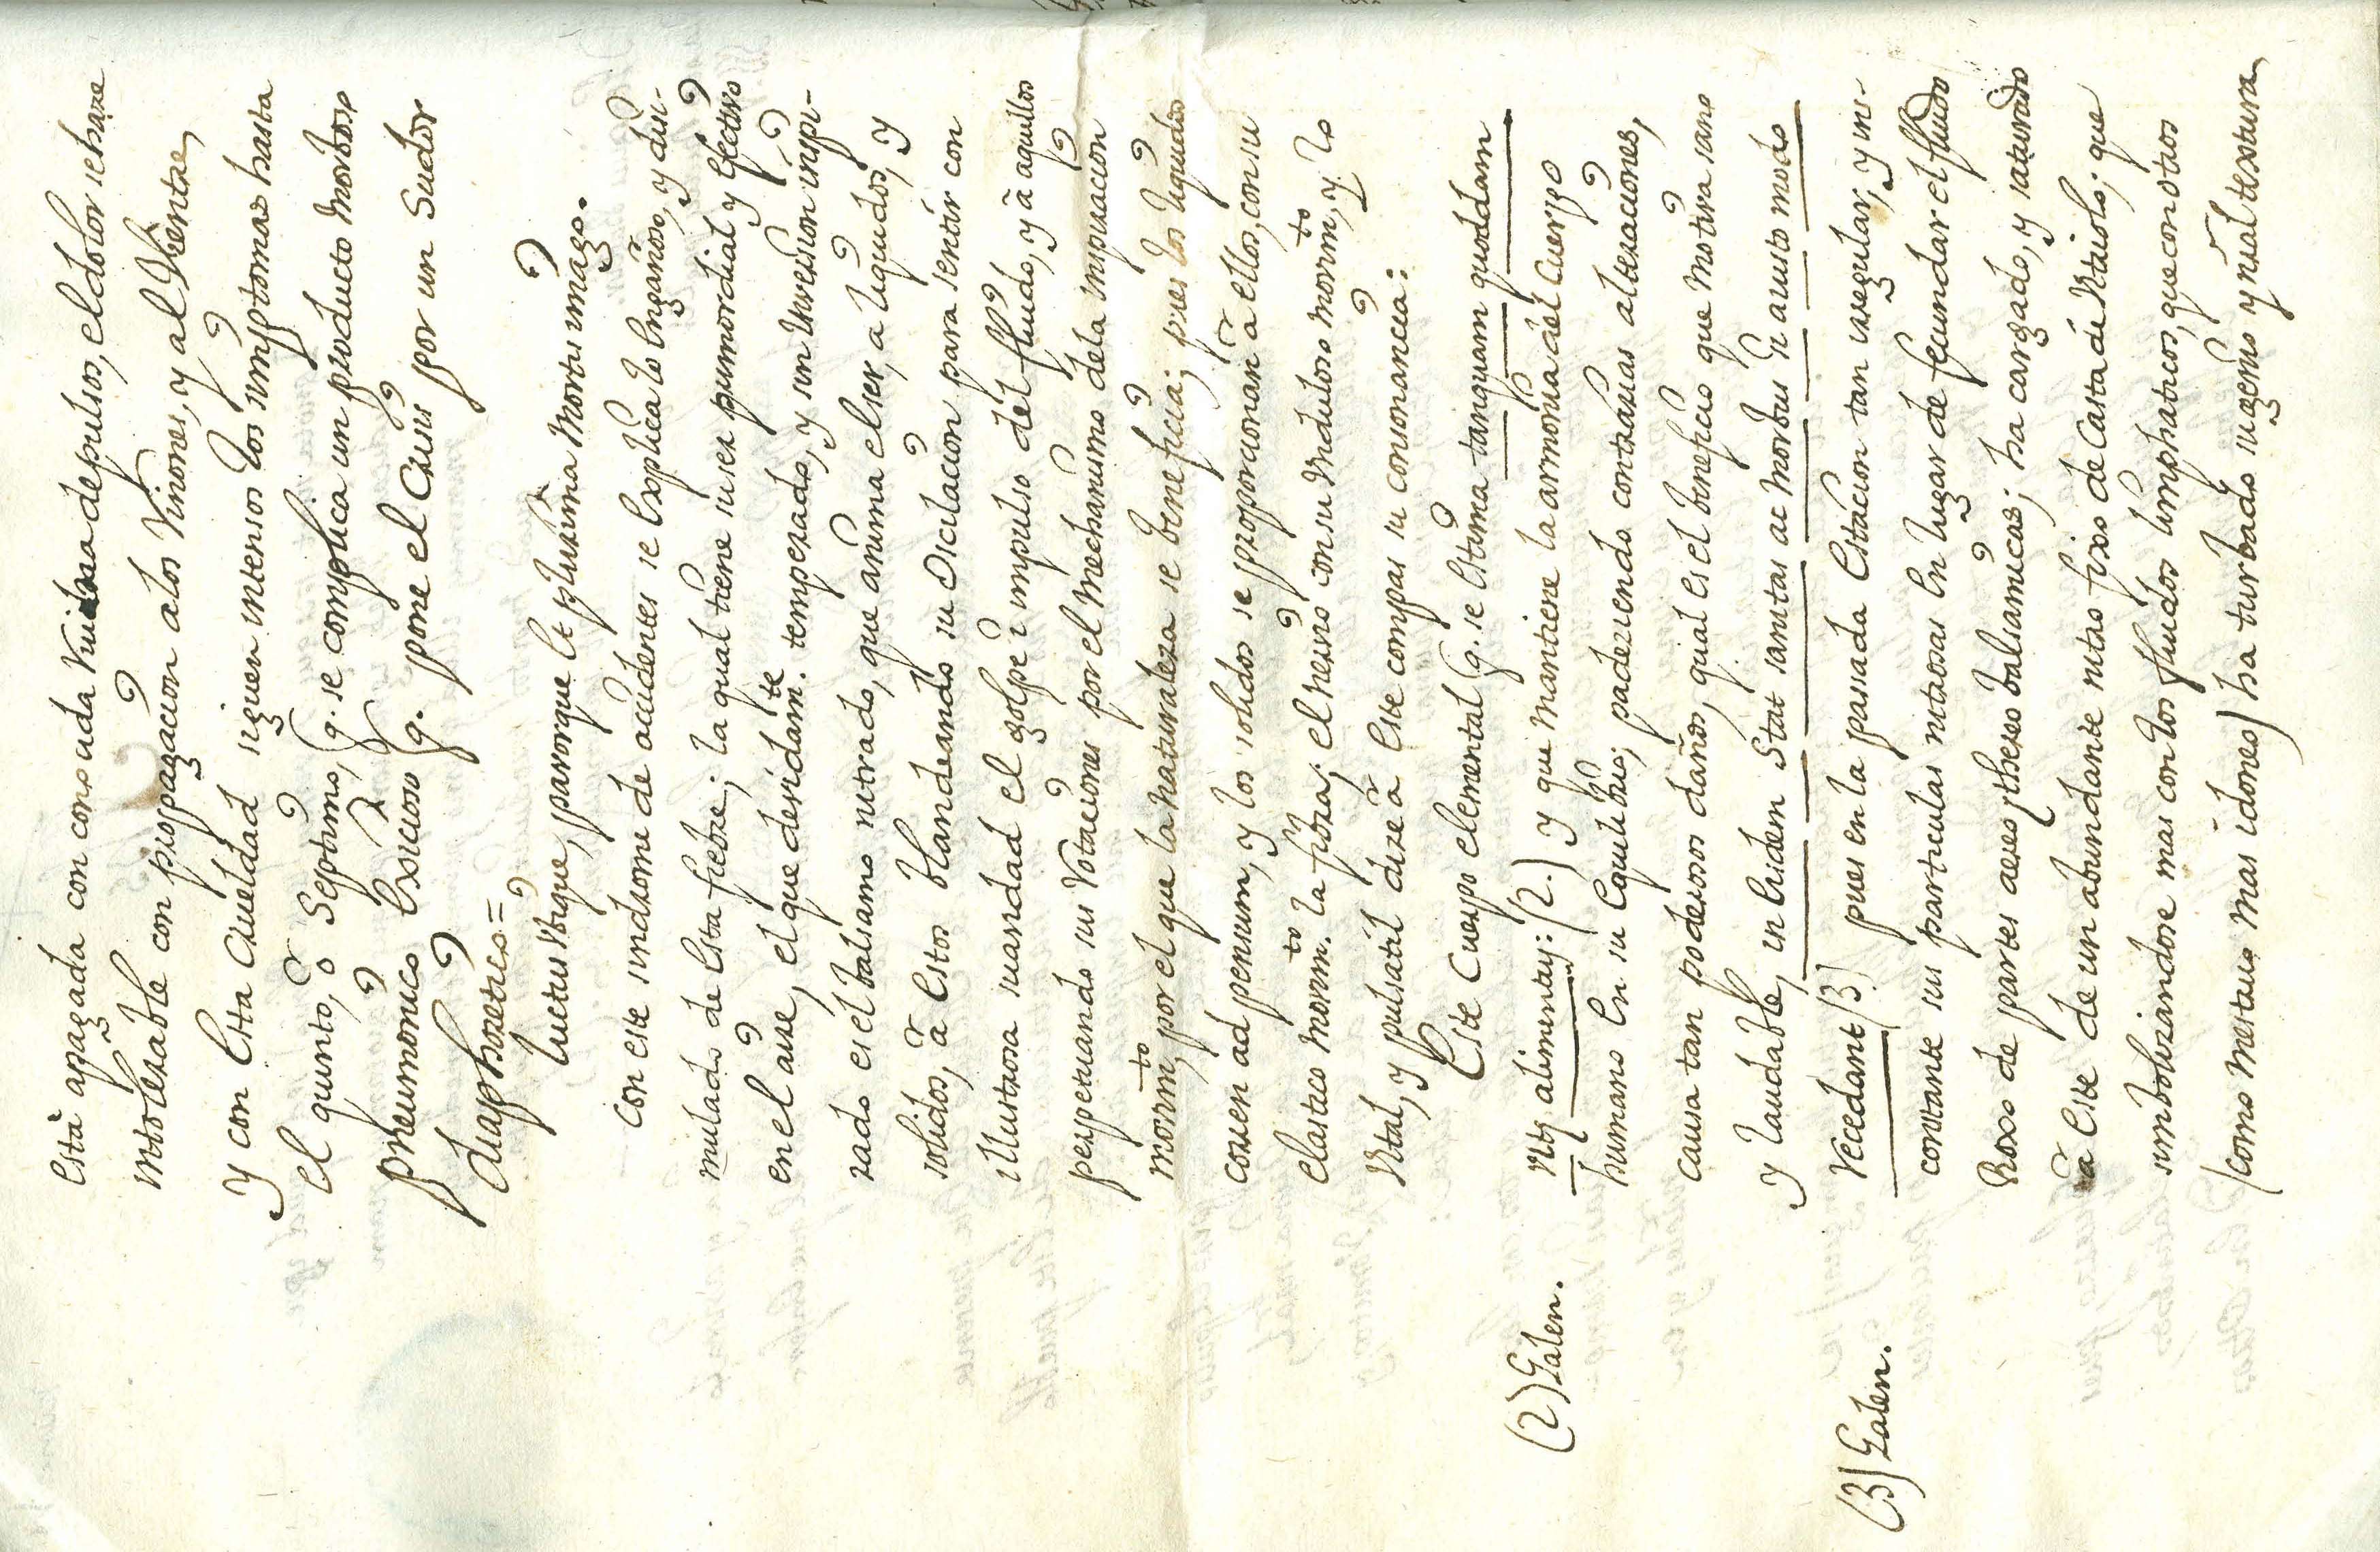 està apagada con conosida Kuidssa de pulsos, el dolor se haze
intolerable con propagacion a los Riñones, y al Vientre,
y con esta crueldad siguen intensos los simptomas hasta
el quinto, ò Septimo, q. se complica un producto morboso
pneumonico exicioso q. pone el Crisis por un Sudor
diaphoretico=
Luctus ubique, pavorque et plurima Mortis imago.
Con este sindrome de accidentes se explica lo engañoso, y disi-
mulado de esta fiebre; la qual tiene su ser primordial y efectivo
en el aire, el que devidam.te temperado, y sin inversion inspi-
rado es el balsamo nitrado, que anima el ser, a liquidos, y
solidos, à estos blandeando su Oscilacion para sentir con
illustrosa suavidad el golpe è impulso del fluido, y à aquellos
perpetuando sus rotaciones por el mechanismo de la inspiracion
movim.to, por el que la naturaleza se beneficia; pues los liquidos
corren ad pensum, y los solidos se proporcionan à ellos, con su
elastico movim.to la fibra; el nervio con su unduloso movim.to, y lo
vital, y pulsatil dize à este compas su consonancia:
Este Cuerpo elemental q. se estima tanquam quoddam
vitæ alimentum: (2.) y que mantiene la armonia del Cuerpo
humano en su equilibrio; padeziendo contrarias alteraciones,
causa tan poderosos daños, qual es el beneficio que motiva sano
y laudable, in eisdem Stat sanitas ac morbus si a iusto modo
recedant (3) pues en la passada estacion tan irregular, y in-
constante sus particulas nitrosas en lugar de fecundar el fluido
Roxo de partes aereo ethereo balsamicas; ha cargado, y saturado
à este de un abundante nitro fixo de Casta de Vitriolo; que
simbolizandose mas con los fluidos limphaticos, que con otros
(como mestruo mas idoneo) ha turbado su genio y nral textura,
(2) Galen.
(3) Galen.